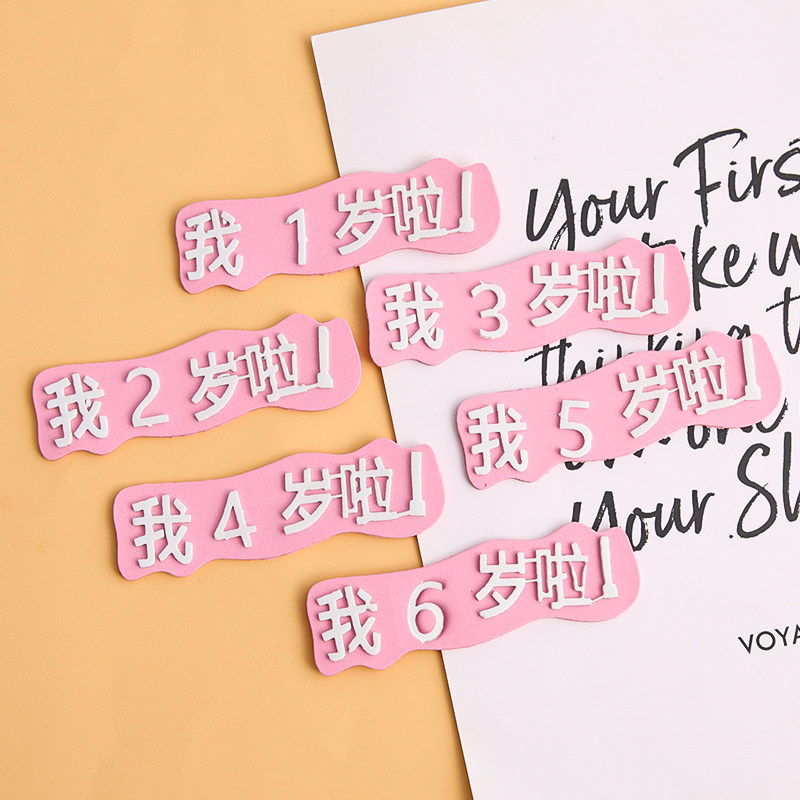 我1岁啦!
我3岁啦!
我2岁啦!
我5岁啦!
我4岁啦!
我6岁啦!
Your Firs
ke w
thinking t
one
Your Sh
VOYA